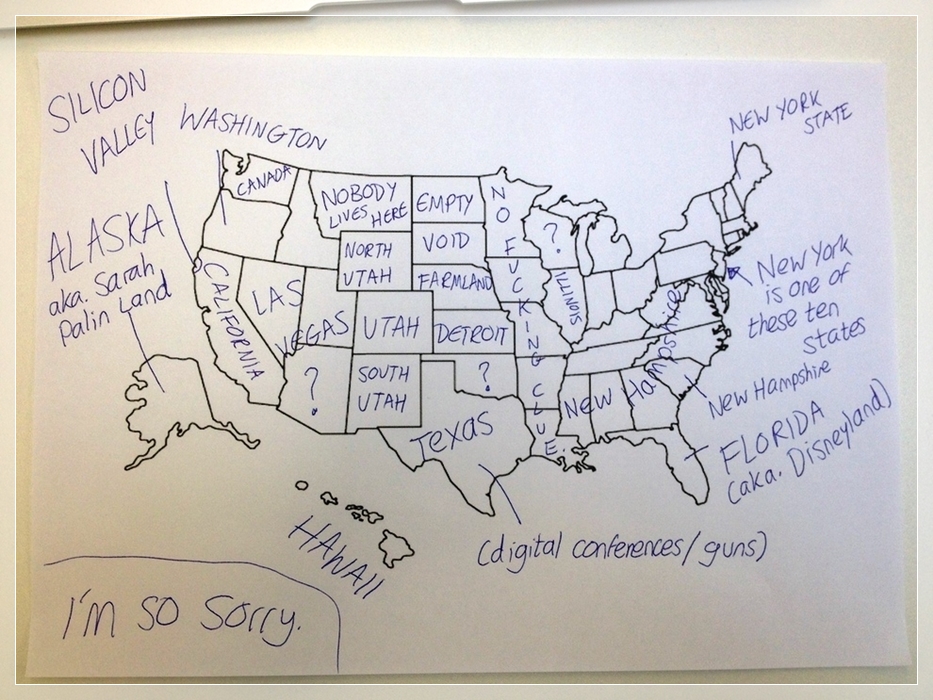 SILICON
VALLEY
WASHINGTON
NEW YORK
STATE
CANADA
NOBODY
LIVES HERE
EMPTY
NO FUCKING CLUE.
?
ALASKA
aka. Sarah
Palin Land
NORTH
UTAH
VOID
FARMLAND
CALIFORNIA
LAS
VEGAS
UTAH
DETROIT
ILLINOIS
New York
is one of
these ten
States
?
SOUTH
UTAH
?
Texas
NEW Hampshire
New Hampshire
FLORIDA
(aka. Disneyland)
HAWAII
(digital conferences/guns)
I'm so sorry.